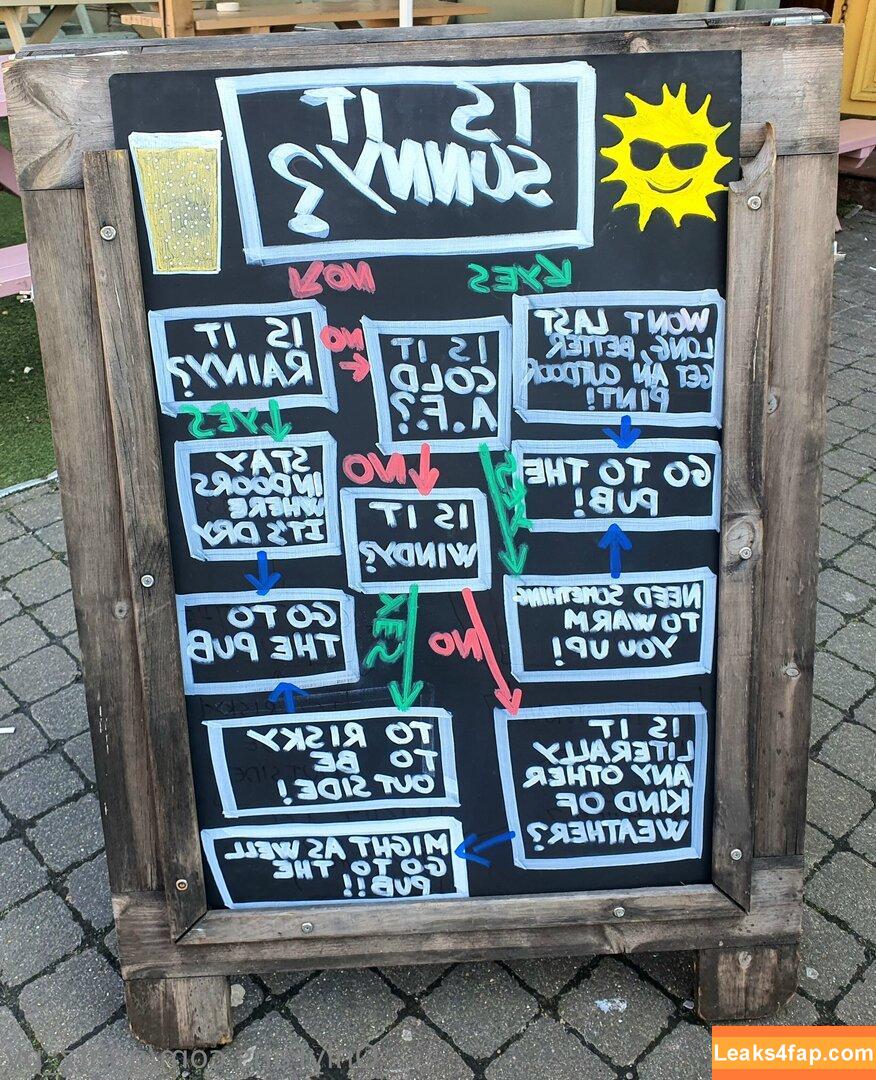 IS IT
SUNNY?
YES
NO
WONT LAST
LONG, BETTER
GET AN OUTDOOR
PINT!
IS IT
COLD
A.F.?
NO
IS IT
RAINY?
YES
GO TO THE
PUB!
YES
NO
STAY
INDOORS
WHERE
IT'S DRY
IS IT
WINDY?
NEED SOMETHING
TO WARM
YOU UP!
NO
YES
GO TO
THE PUB
IS IT
LITERALLY
ANY OTHER
KIND OF
WEATHER?
TO RISKY
TO BE
OUTSIDE!
MIGHT AS WELL
GO TO THE
PUB!!
Leaks4fap.com